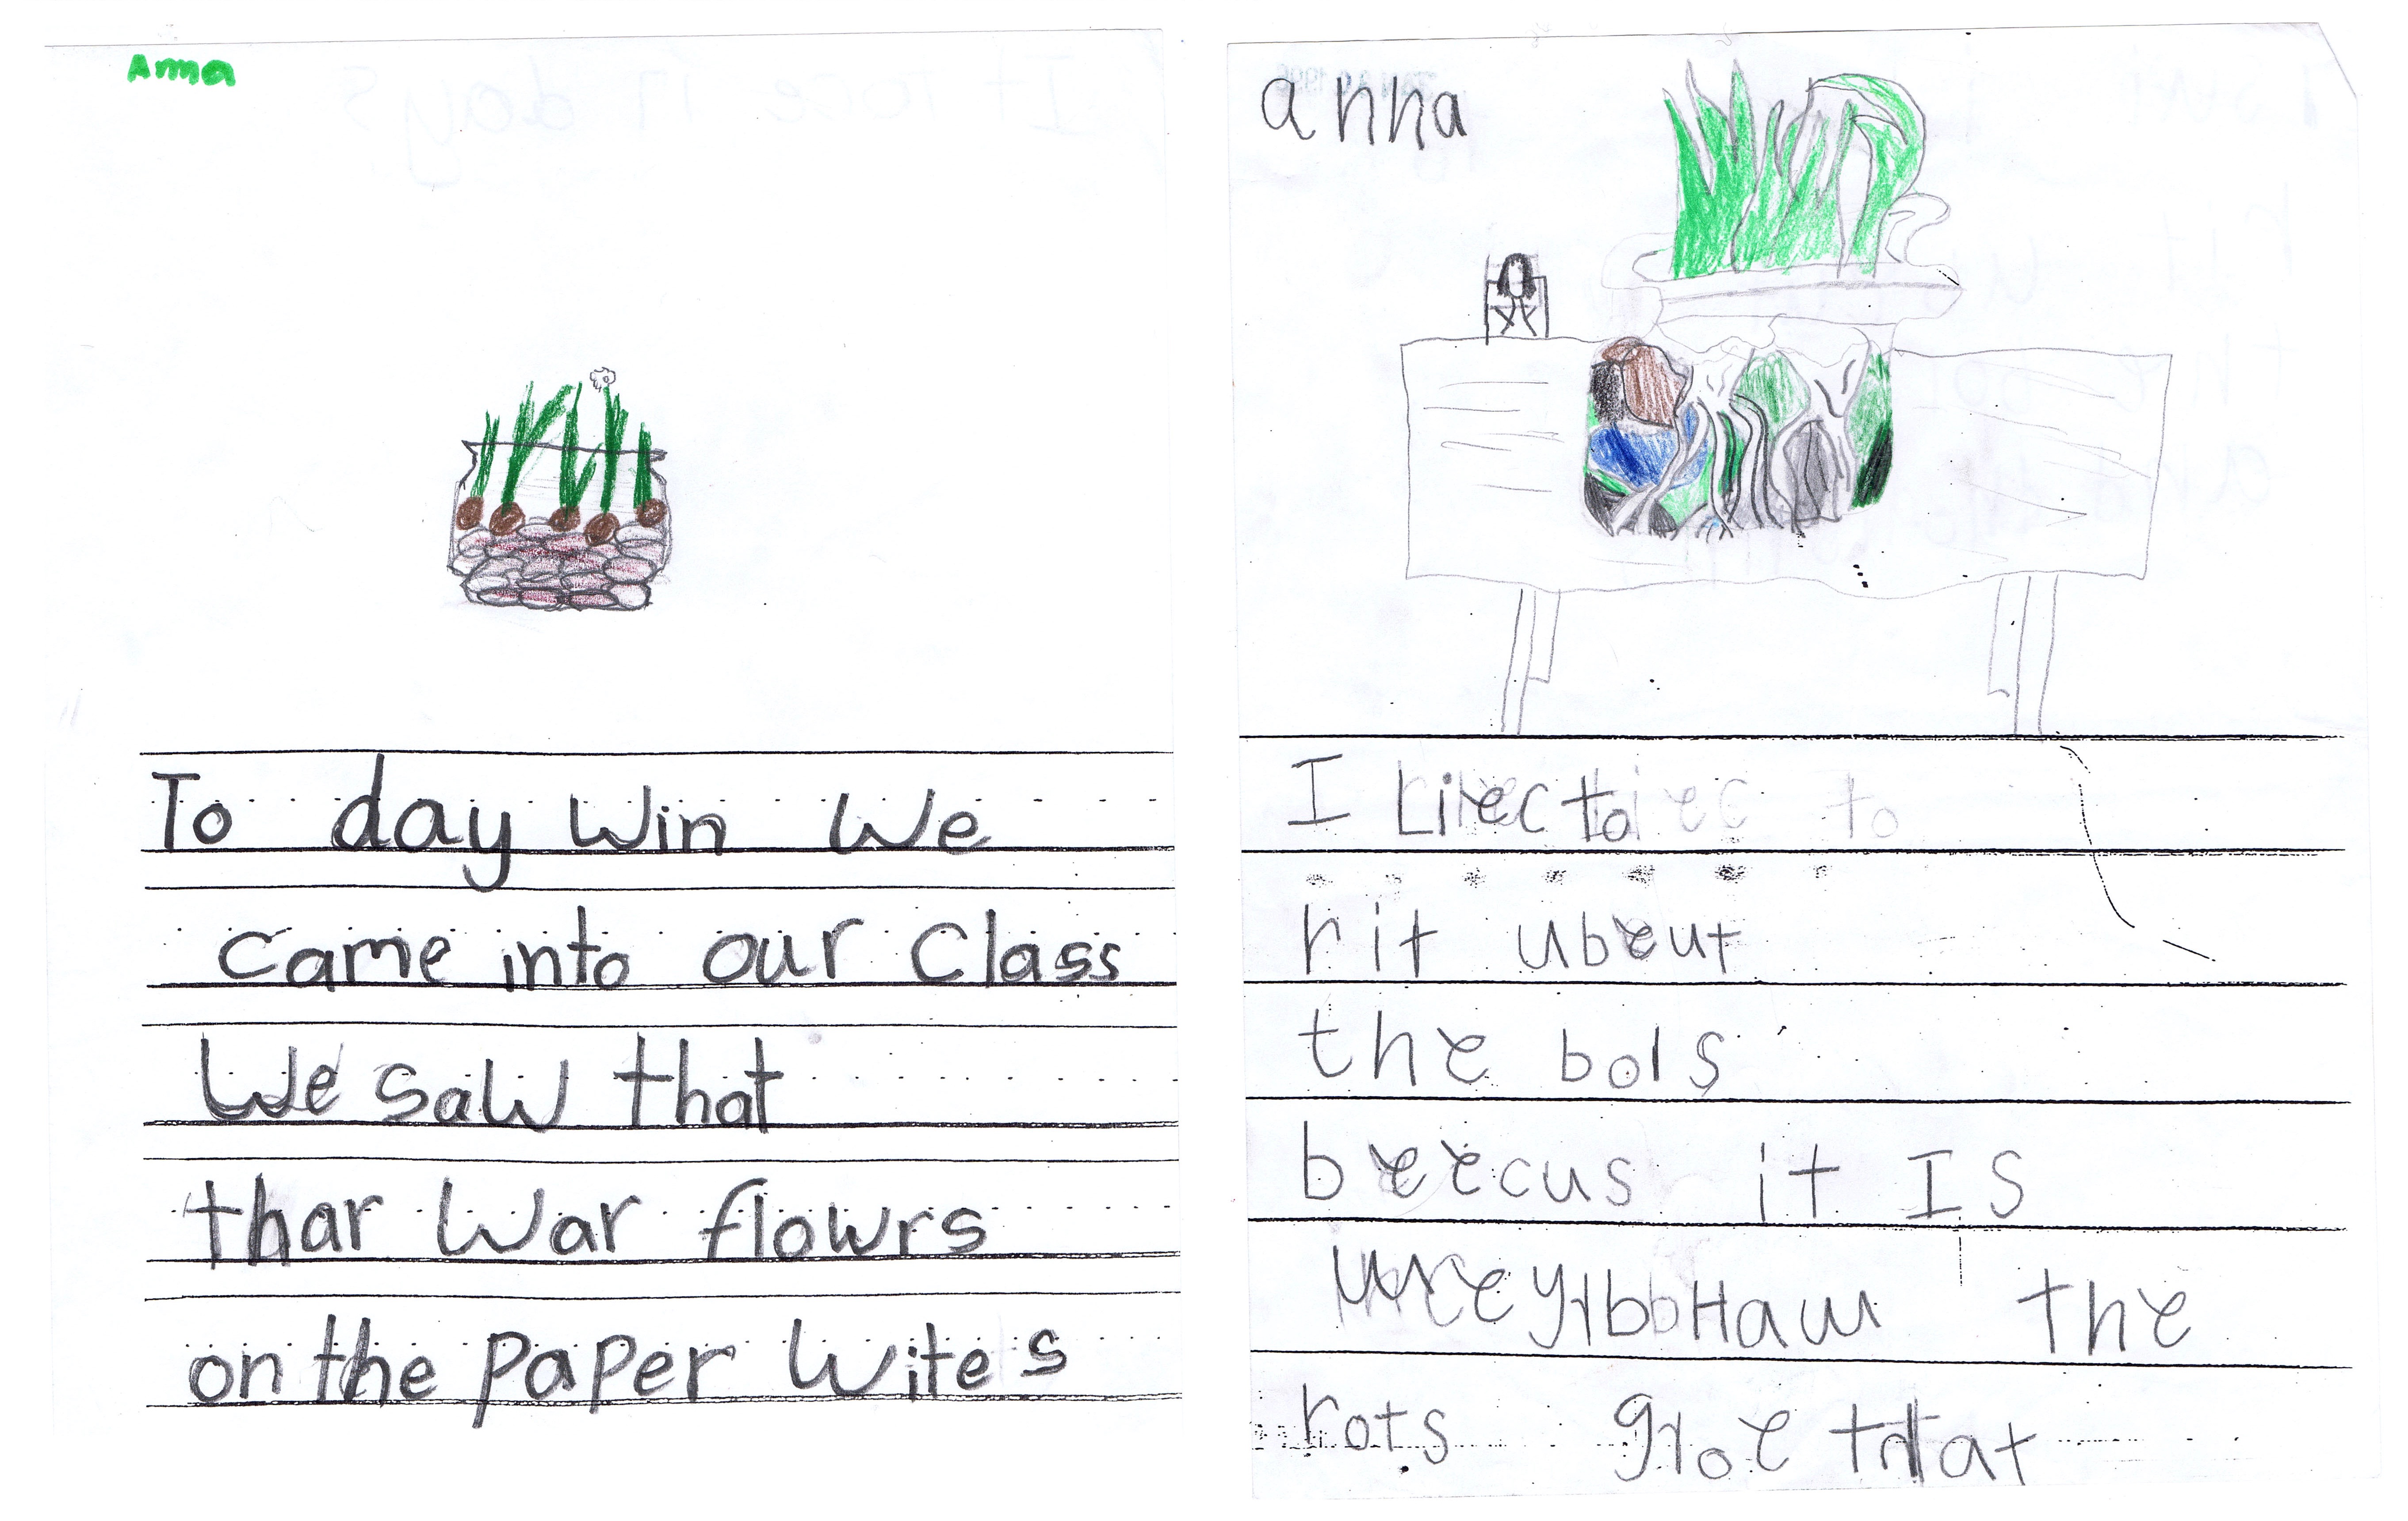 Anna
To day win we
came into our class
We saw that
thar war flowrs
on the paper wites
anna
I Liec to
rit ubeut
the bols
beecus it IS
the
rots groe that